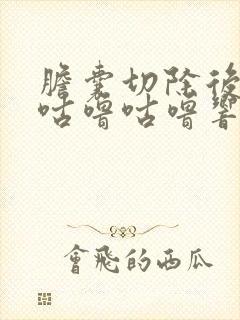 膽囊切除後
咕嚕咕嚕響
會飛的西瓜